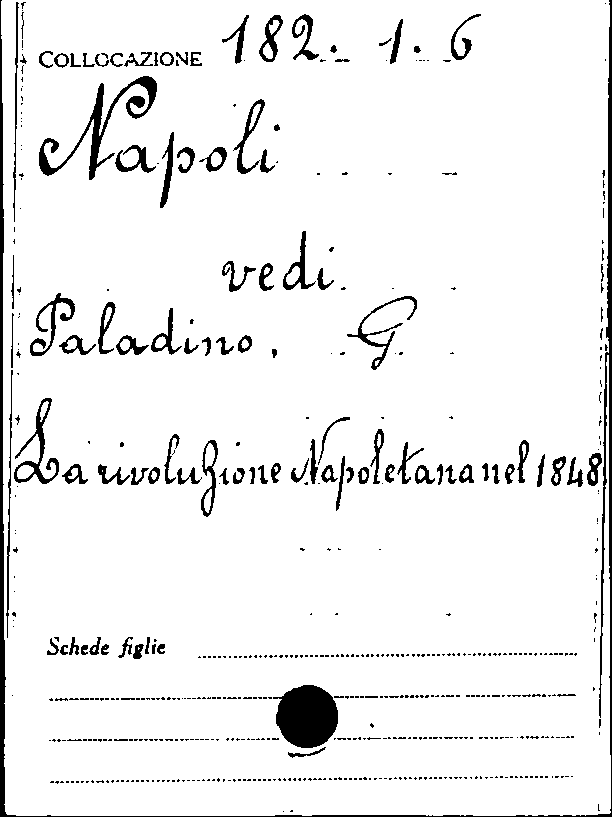 COLLOCAZIONE 182. 1. 6
Napoli
vedi
Paladino, G.
La rivoluzione Napoletana nel 1848
Schede figlie